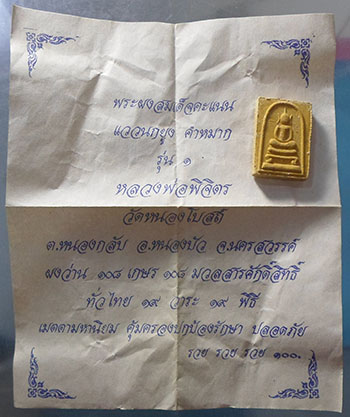 พระผงสมเด็จคะแนน
แววนกยูง คำหมาก
รุ่น ๑
หลวงพ่อพิจิตร
วัดหนองโบสถ์
ต.หนองกลับ อ.หนองบัว จ.นครสวรรค์
ผงว่าน ๑๐๘ เกษร ๑๐๘ มวลสารศักดิ์สิทธิ์
ทั่วไทย ๑๙ วาระ ๑๙ พิธี
เมตตามหานิยม คุ้มครองปกป้องรักษา ปลอดภัย
รวย รวย รวย ๑๐๐.